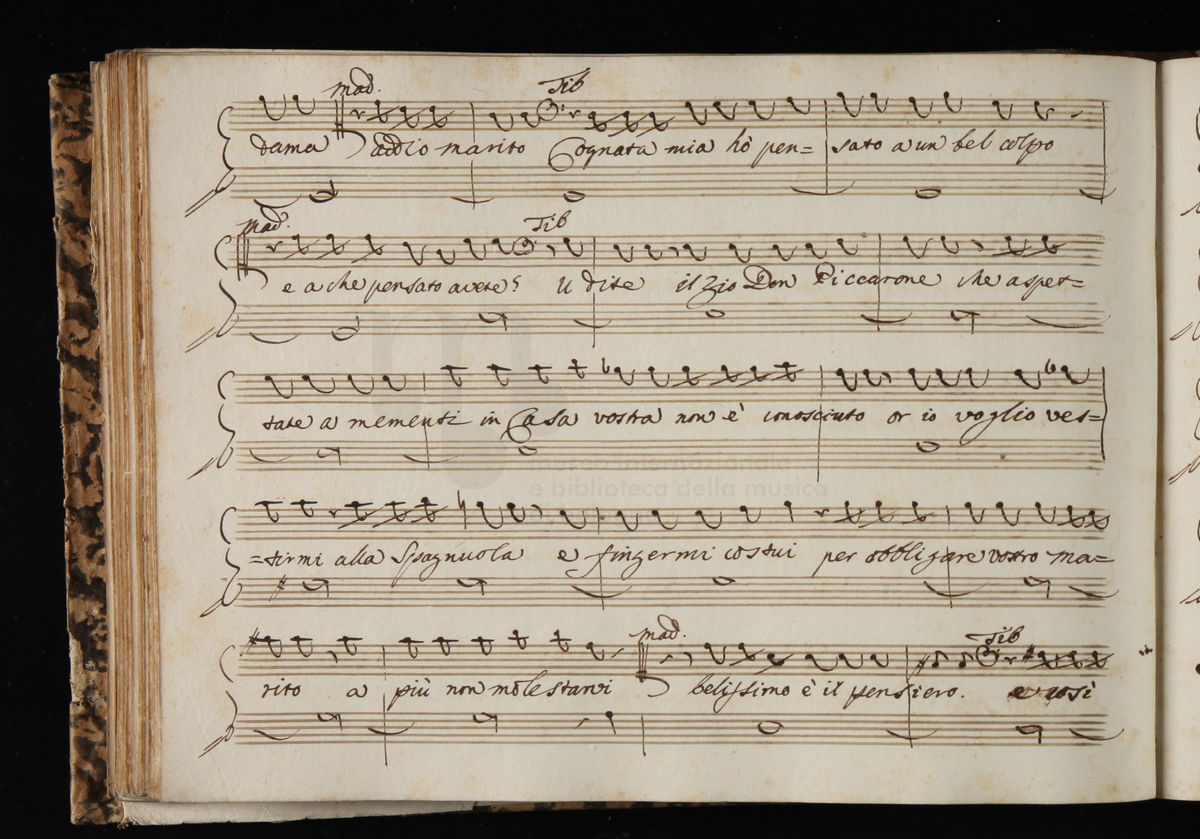 mad. Tib
dama addio marito Cognata mia hò pen= sato a un bel colpo
mad. Tib
e a che pensato avete? Udite il Zio Don Piccarone che aspet=
tate a momenti in Casa vostra non è conosciuto or io voglio ves=
=tirmi alla Spagnuola e fingermi costui per obbligare vostro ma=
mad. Tib
rito a più non molestarvi belissimo è il pensiero. e così
museo internazionale
e biblioteca della musica